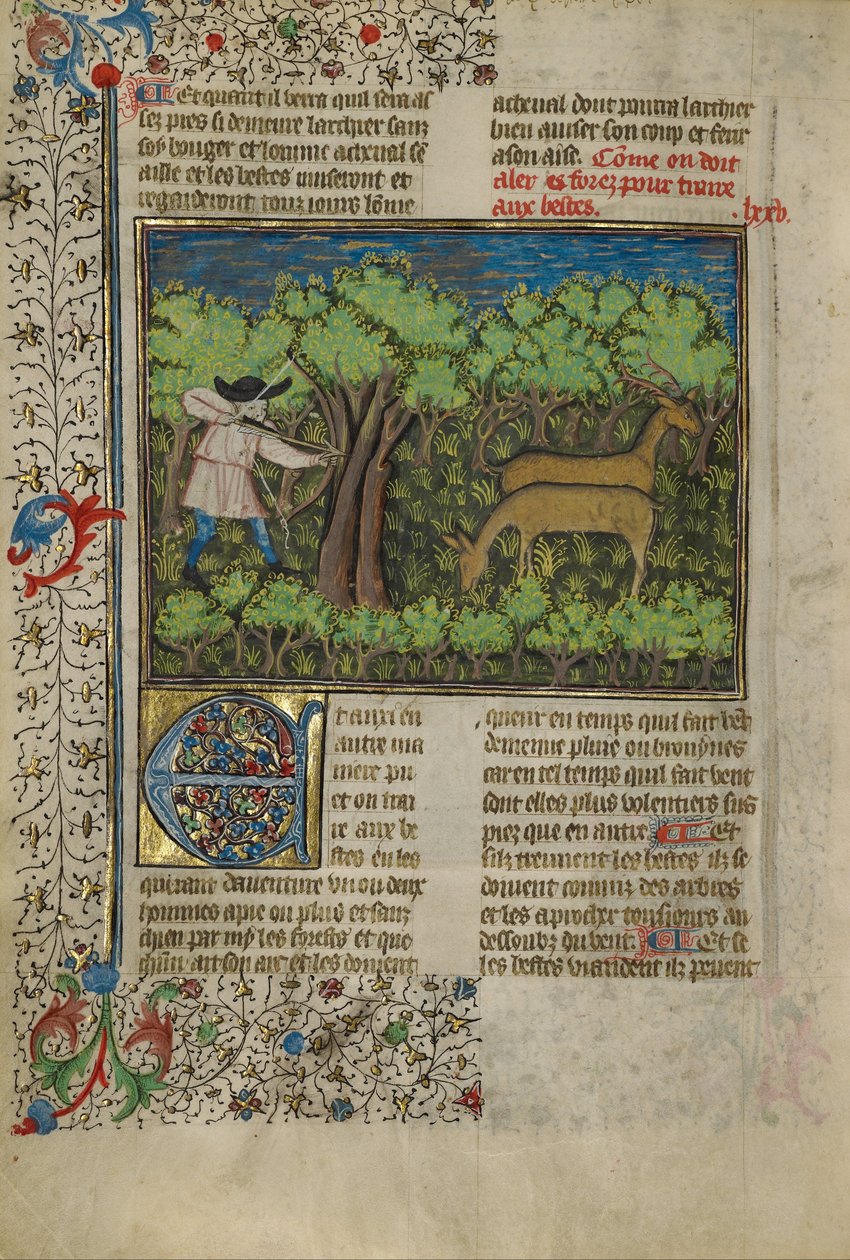 Et quant il verra quil sera as
sez pres si demeure larchier sanz
soy bouger et lomme acheual sē
aille et les bestes museront et
regarderont touz iours lōme
acheual dont pourra larchier
bien auiser son coup et ferir
a son aise. Cōme on doit
aler es forez pour traire
aux bestes. .lxxv.
Et aussi en
autre ma
niere pu
et on trai
re aux be
stes en les
querant dauenture vn ou deux
hommes apie ou plus et sanz
chien par my les forests et que
chūn ait son arc et les doiuent
querir en temps quil fait vēt
demenue pluie ou bruynes
car en tel temps quil fait vent
sont elles plus volentiers sus
piez que en autre Et
silz treuuent les bestes ilz se
doiuent couurir des arbres
et les aprocher tousiours au
dessoubz du vent. Et se
les bestes viandent ilz peuent